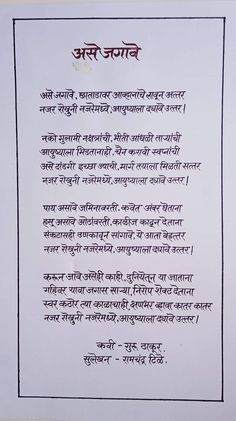 असे जगावे
असे जगावे, छाताडावर आव्हानाचे लावून अत्तर
नजर रोखुनी नजरेमध्ये, आयुष्याला द्यावे उत्तर!
नको गुलामी नक्षत्रांची, भीती आंधळी ताऱ्यांची
आयुष्याला भिडतानाही, चैन करावी स्वप्नांची
असे दांडगी इच्छा ज्याची, मार्ग तयाला मिळती सत्तर
नजर रोखुनी नजरेमध्ये, आयुष्याला द्यावे उत्तर!
पाय असावे जमिनीवरती, कवेत अंबर घेताना
हसू असावे ओठांवरती, काळीज काढून देताना
संकटासही ठणकावून सांगावे, ये आता बेहत्तर
नजर रोखुनी नजरेमध्ये, आयुष्याला द्यावे उत्तर!
करून जावे असेही काही, दुनियेतून या जाताना
गहिवर यावा जगास साऱ्या, निरोप शेवट देताना
स्वर कठोर त्या काळाचाही, क्षणभर व्हावा कातर कातर
नजर रोखुनी नजरेमध्ये, आयुष्याला द्यावे उत्तर!
कवी - गुरू ठाकूर
सुलेखन - रामचंद्र टिळे.